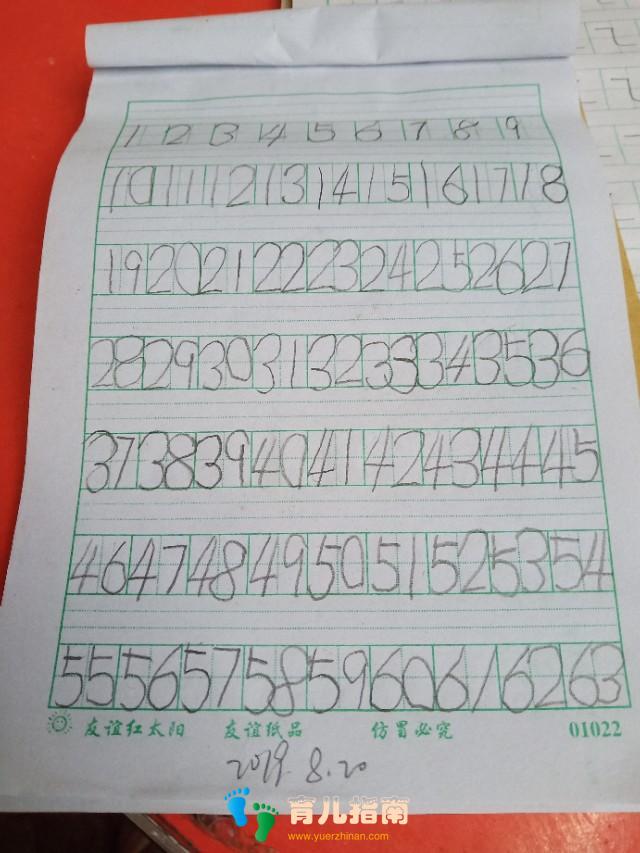 1 2 3 4 5 6 7 8 9
10 11 12 13 14 15 16 17 18
19 20 21 22 23 24 25 26 27
28 29 30 31 32 33 34 35 36
37 38 39 40 41 42 43 44 45
46 47 48 49 50 51 52 53 54
55 56 57 58 59 60 61 62 63
友谊红太阳 友谊纸品 仿冒必究 01022
2019.8.20
育儿指南
www.yuerzhinan.com